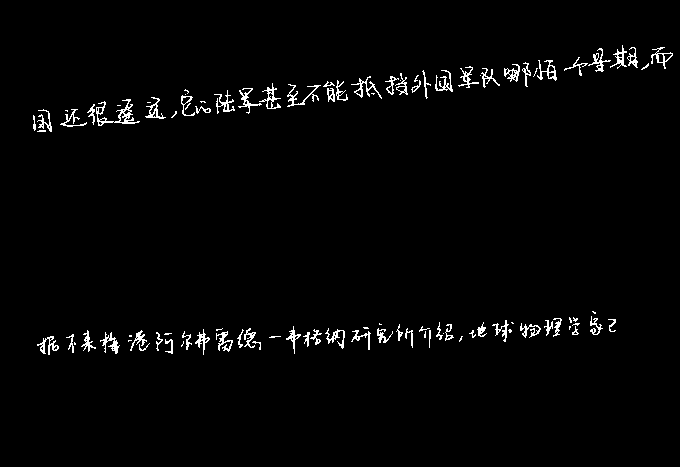 国还很遥远,它的陆军甚至不能抵挡外国军队哪怕一个星期,而
据不来梅港阿尔弗雷德一韦格纳研究所介绍,地球物理学家已